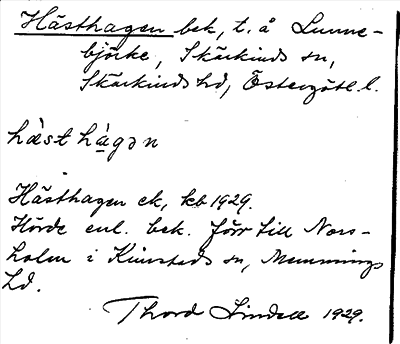 Hästhagen bek, t. å Lunne-
björke, Skärkinds sn,
Skärkinds hd, Östergötl. l.
hàsthàgən
Hästhagen ek, kb 1929.
Hörde enl. bek. förr till Nors-
holm i Kimstads sn, Memmings
hd.
Thord Lindell 1929.